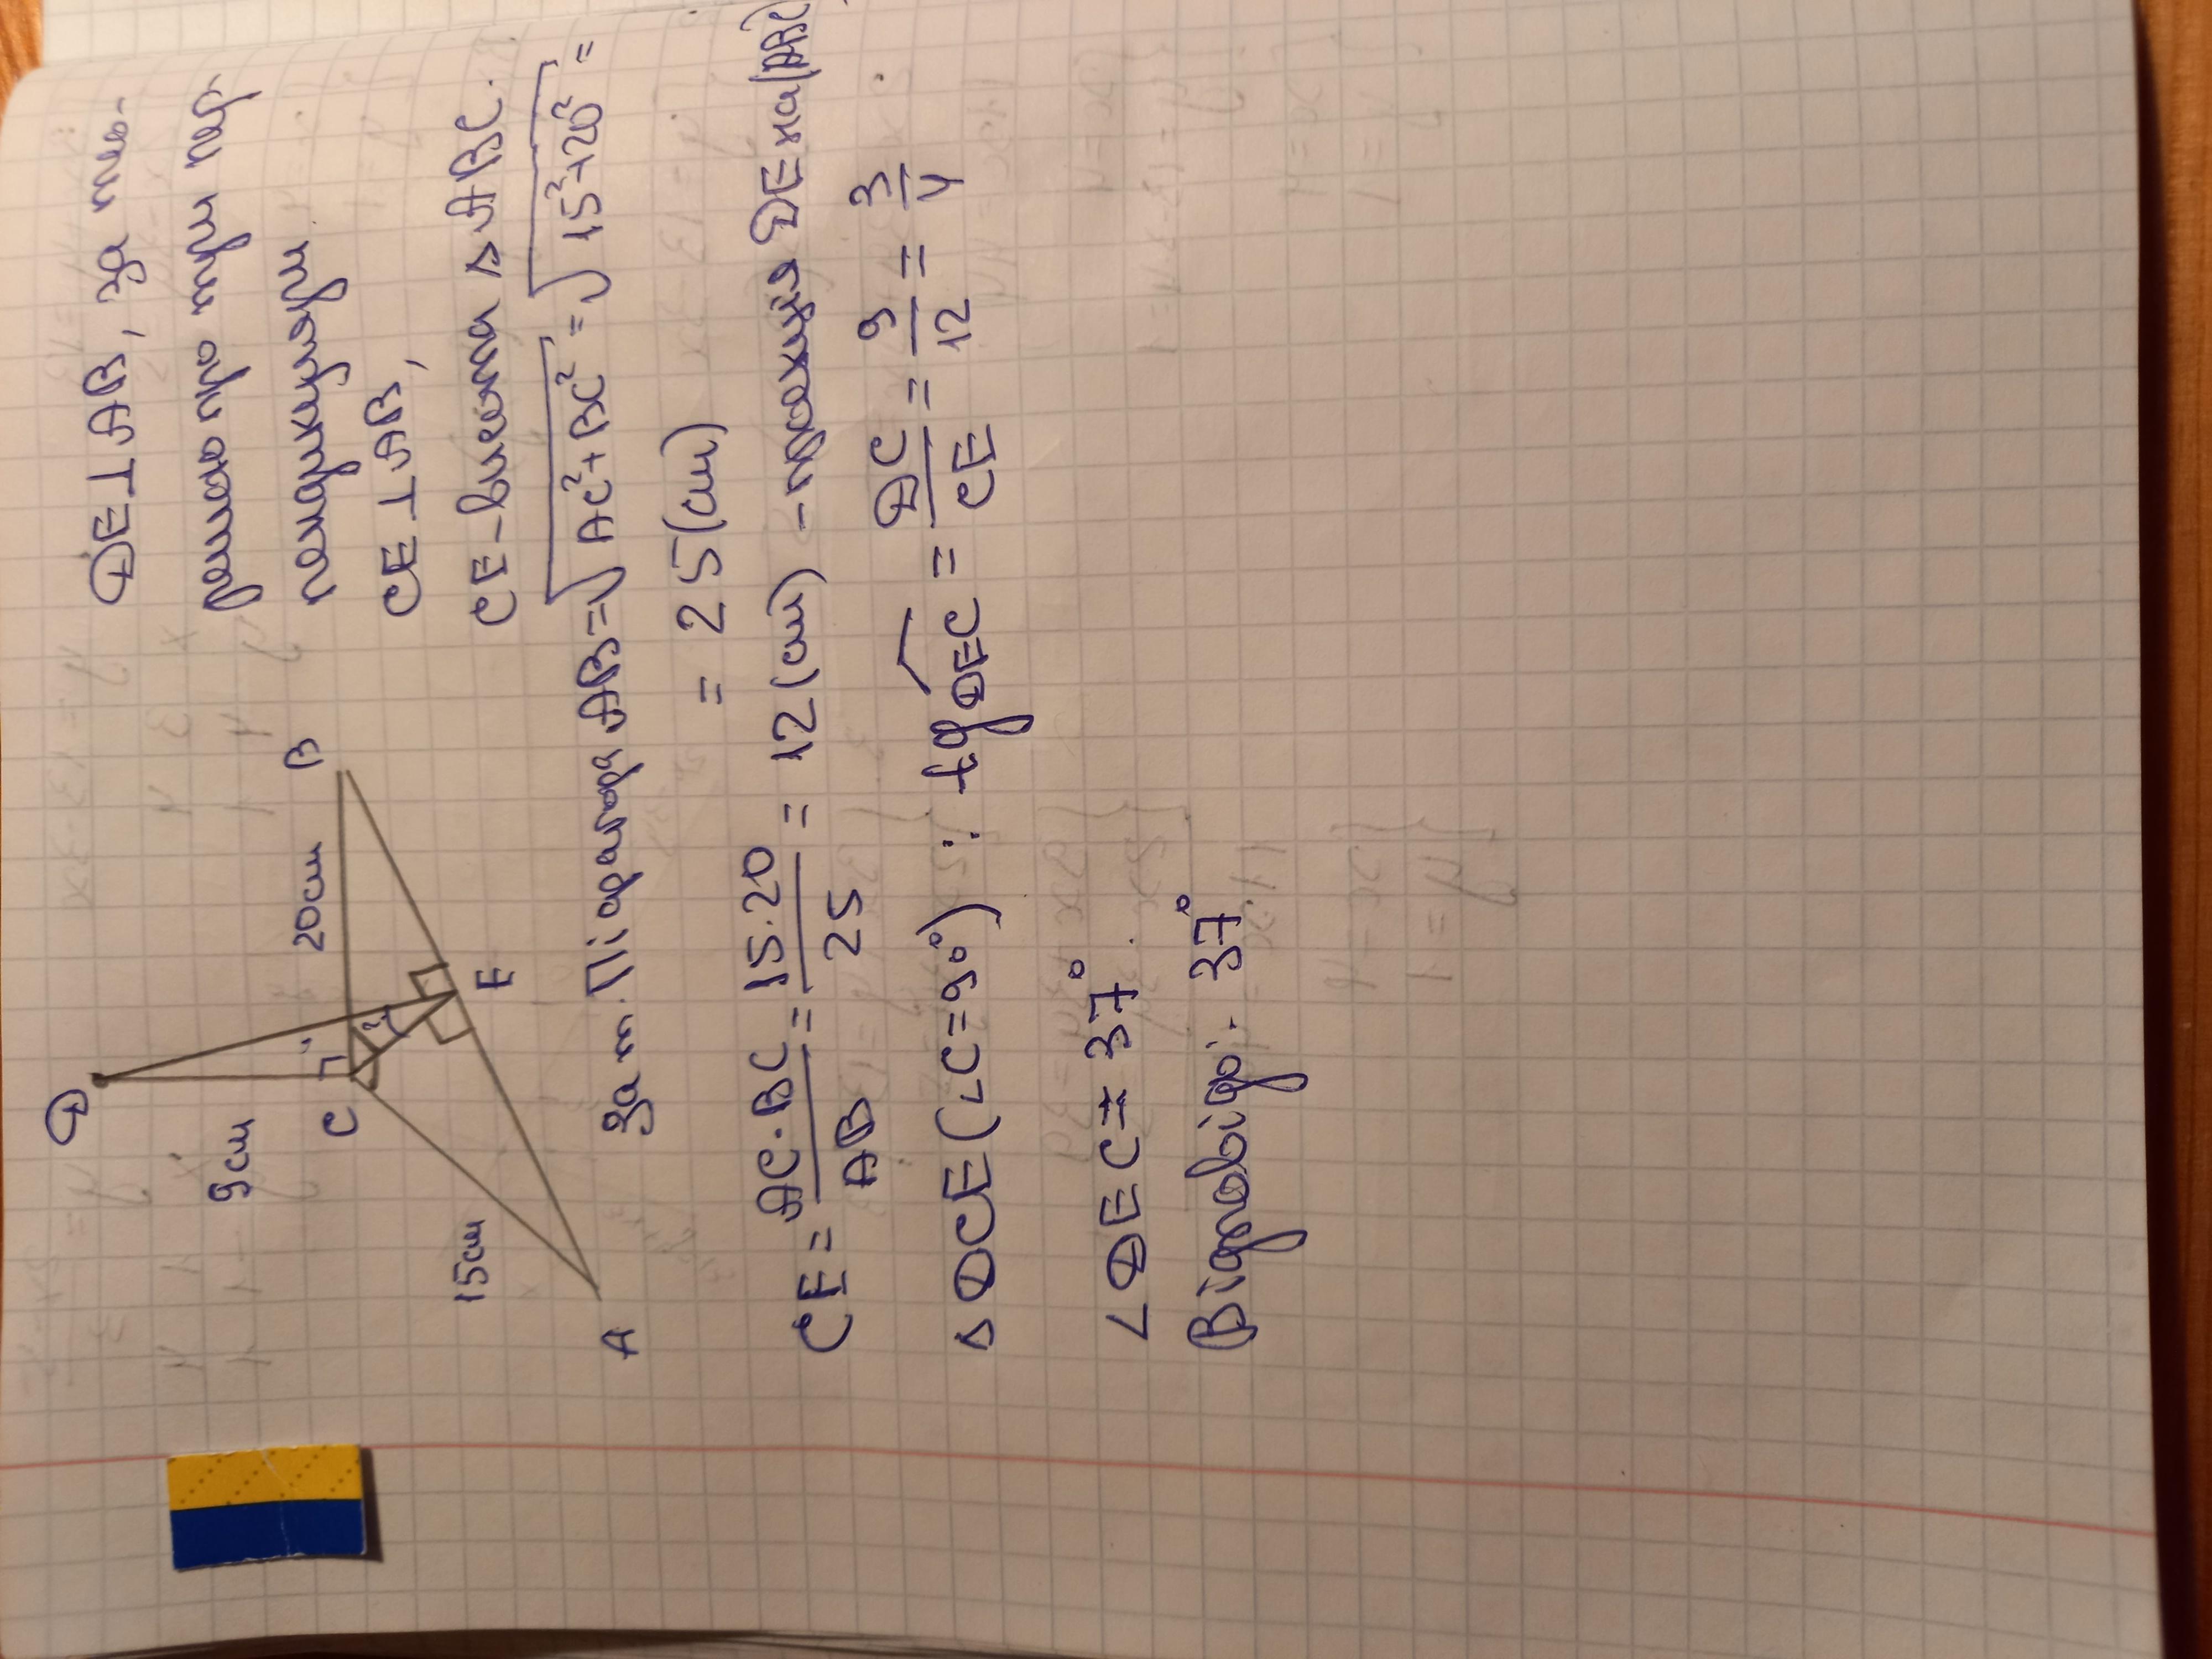 D
9см
C
20см
B
15см
12
E
A
DE⊥AB, за тео-
ремою про три пер-
пендикуляри
CE⊥AB,
CE - висота △ABC.
За т. Піфагора AB=√AC²+BC² = √15²+20² =
= 25(см)
CE = AC·BC/AB = 15·20/25 = 12(см) - проекція DE на(ABC)
△DCE (∠C=90°): tg DEC = DC/CE = 9/12 = 3/4
∠DEC = 37°.
Відповідь: 37°